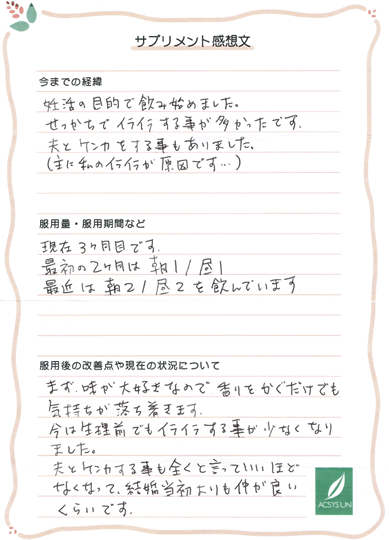 サプリメント感想文
今までの経緯
妊活の目的で飲み始めました。
せっかちでイライラする事が多かったです.
夫とケンカをする事もありました。
(主に私のイライラが原因です…)
服用量・服用期間など
現在3ヶ月目です.
最初の2ヶ月は 朝1/昼1
最近は 朝2/昼2 を飲んでいます
服用後の改善点や現在の状況について
まず、味が大好きなので 香りをかぐだけでも
気持ちが落ち着きます.
今は生理前でもイライラする事が少なくなり
ました。
夫とケンカする事も全くと言っていいほど
なくなって、結婚当初よりも仲が良い
くらいです.
ACSYS UN